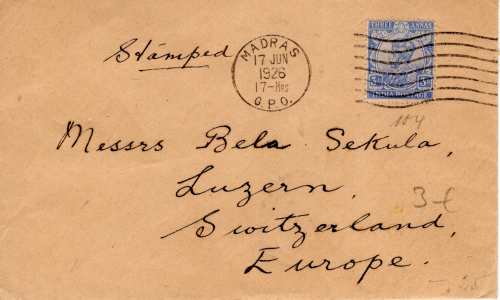 Stamped
MADRAS
17 JUN
1926
17-Hrs
G.P.O.
THREE ANNAS
3As 3As
INDIA POSTAGE
184
Messrs Bela Sekula,
Luzern,
Switzerland,
Europe.
3-€